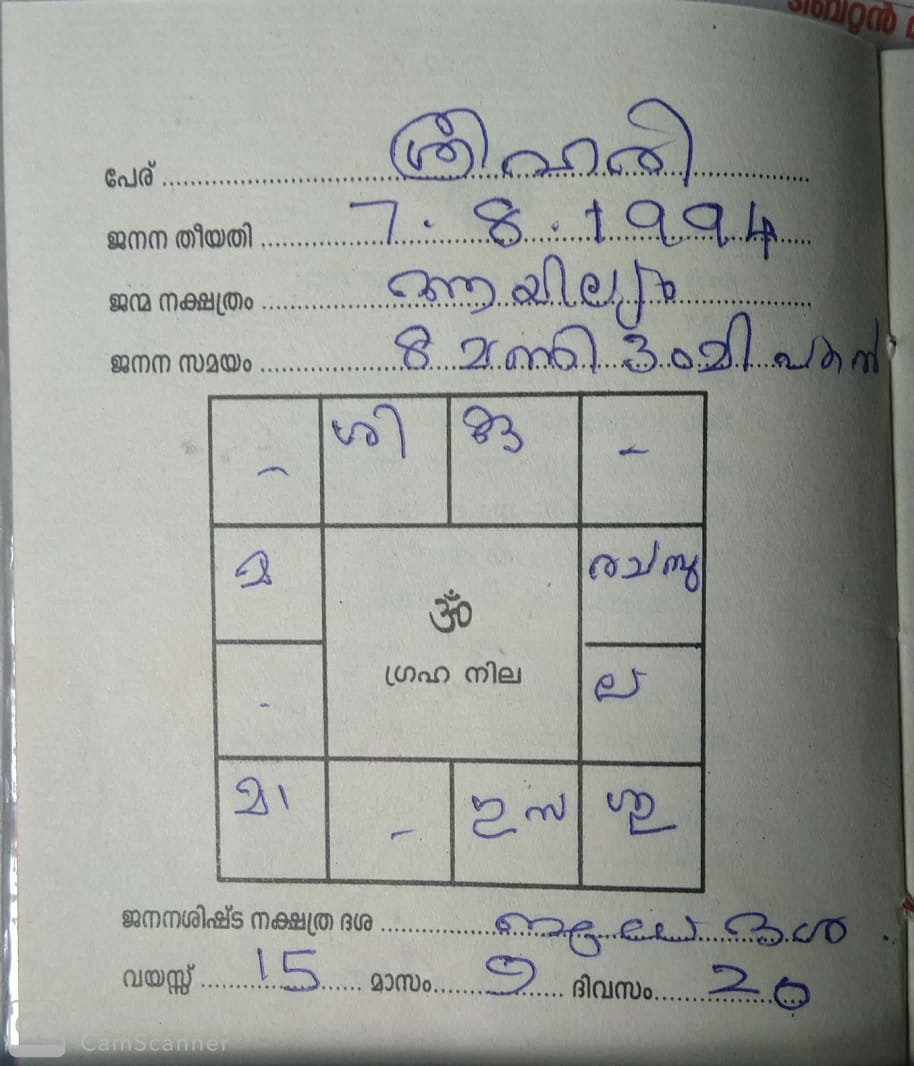 പേര് ശ്രീഹരി
ജനന തീയതി 7.8.1994
ജന്മ നക്ഷത്രം ആയില്യം
ജനന സമയം 8 മണി 30 മി പകൽ
- ശി കു -
മ രചബു
ഓം
ഗ്രഹ നില
- ല
മാ - ഗുസ ശു
ജനനശിഷ്ട നക്ഷത്ര ദശ ദശ
വയസ്സ് 15 മാസം 9 ദിവസം 20
CamScanner